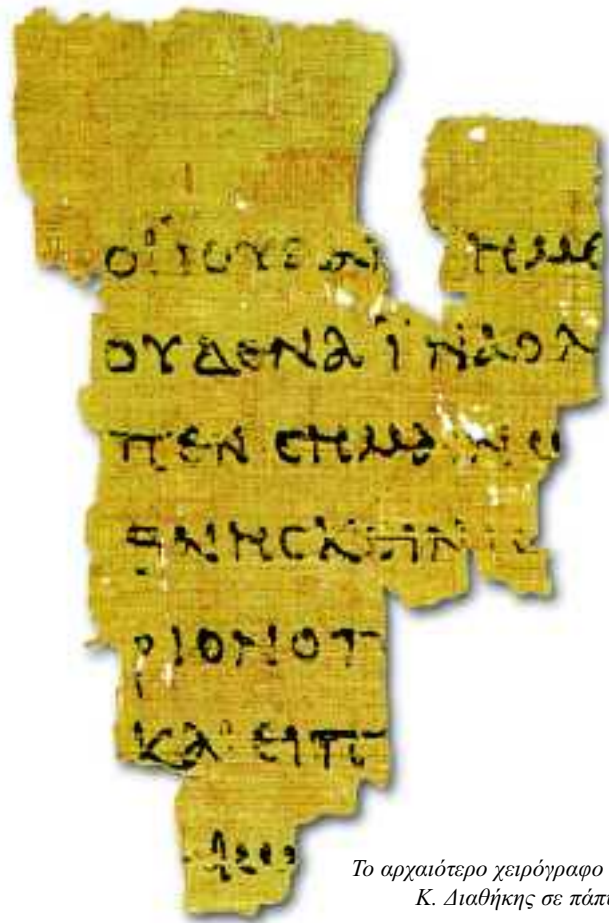 ΟΪΙΟΥΔΑΙ ΗΜΕ
ΟΥΔΕΝΑΪΝΑΟΛ
ΠΕΝCΗΜΑΙΝΩ
ΘΝΗCΚΕΙΝΙ
ΡΙΟΝΟΠ
ΚΑΙΕΙΠ
Το αρχαιότερο χειρόγραφο
Κ. Διαθήκης σε